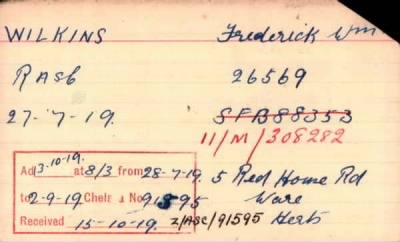 WILKINS Frederick Wm
RASC 26569
27-7-19. SFB88353
11/M/308282
Ad 3-10-19. at 8/3 from 28-7-19. 5 Red House Rd
to 2-9-19 Chelr No 91595 Ware
Received 15-10-19. Z/ASC/91595 Herts